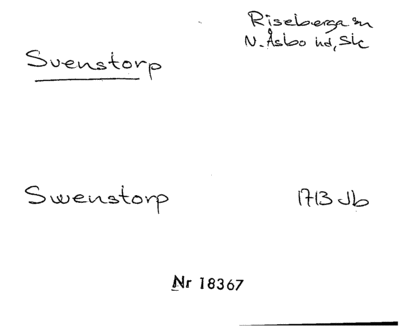 Riseberga sn
N. Åsbo hd, Sk
Svenstorp
Swenstorp 1713 Jb
Nr 18367